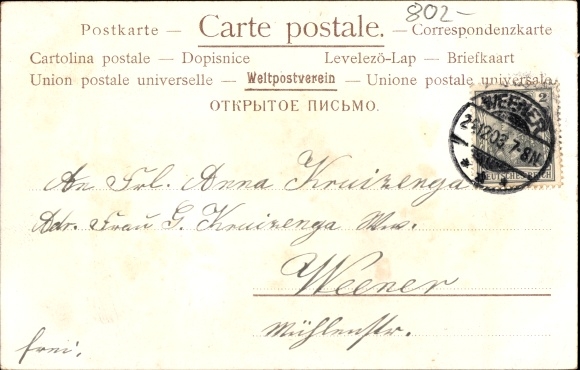 802-
Postkarte — Carte postale. — Correspondenzkarte
Cartolina postale — Dopisnice Levelezö-Lap — Briefkaart
Union postale universelle — Weltpostverein — Unione postale universale
ОТКРЫТОЕ ПИСЬМО.
2
WEENER
12.03. 7-8N.
DEUTSCHES REICH
An Frl. Anna Kruizenga
Adr. Frau G. Kruizenga Ww.
Weener
Mühlenstr.
frei.